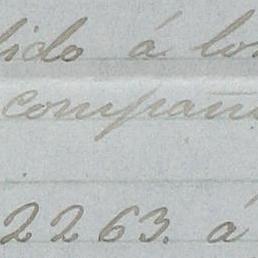 lido á los
compañ
2263. á